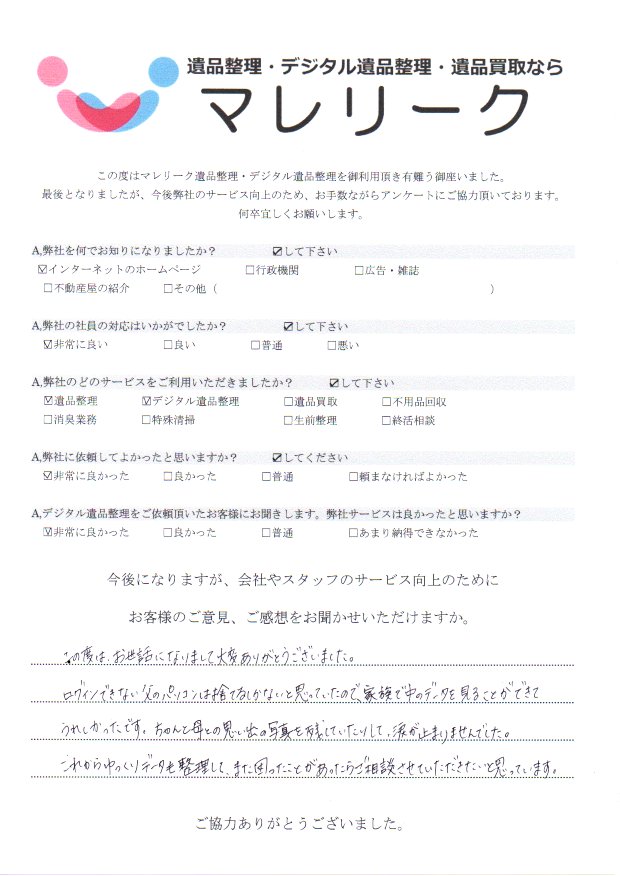 遺品整理・デジタル遺品整理・遺品買取なら
マレリーク
この度はマレリーク遺品整理・デジタル遺品整理を御利用頂き有難う御座いました。
最後となりましたが、今後弊社のサービス向上のため、お手数ながらアンケートにご協力頂いております。
何卒宜しくお願いします。
A,弊社を何でお知りになりましたか？ ☑して下さい
☑インターネットのホームページ □行政機関 □広告・雑誌
□不動産屋の紹介 □その他（ ）
A,弊社の社員の対応はいかがでしたか？ ☑して下さい
☑非常に良い □良い □普通 □悪い
A,弊社のどのサービスをご利用いただきましたか？ ☑して下さい
☑遺品整理 ☑デジタル遺品整理 □遺品買取 □不用品回収
□消臭業務 □特殊清掃 □生前整理 □終活相談
A,弊社に依頼してよかったと思いますか？ ☑してください
☑非常に良かった □良かった □普通 □頼まなければよかった
A,デジタル遺品整理をご依頼頂いたお客様にお聞きします。弊社サービスは良かったと思いますか？
☑非常に良かった □良かった □普通 □あまり納得できなかった
今後になりますが、会社やスタッフのサービス向上のために
お客様のご意見、ご感想をお聞かせいただけますか。
この度は、お世話になりまして大変ありがとうございました。
ログインできない父のパソコンは捨てるしかないと思っていたので、家族で中のデータを見ることができて
うれしかったです。ちゃんと母との思い出の写真を残していたりして、涙が止まりませんでした。
これからゆっくりデータを整理して、また困ったことがあったらご相談させていただきたいと思っています。
ご協力ありがとうございました。